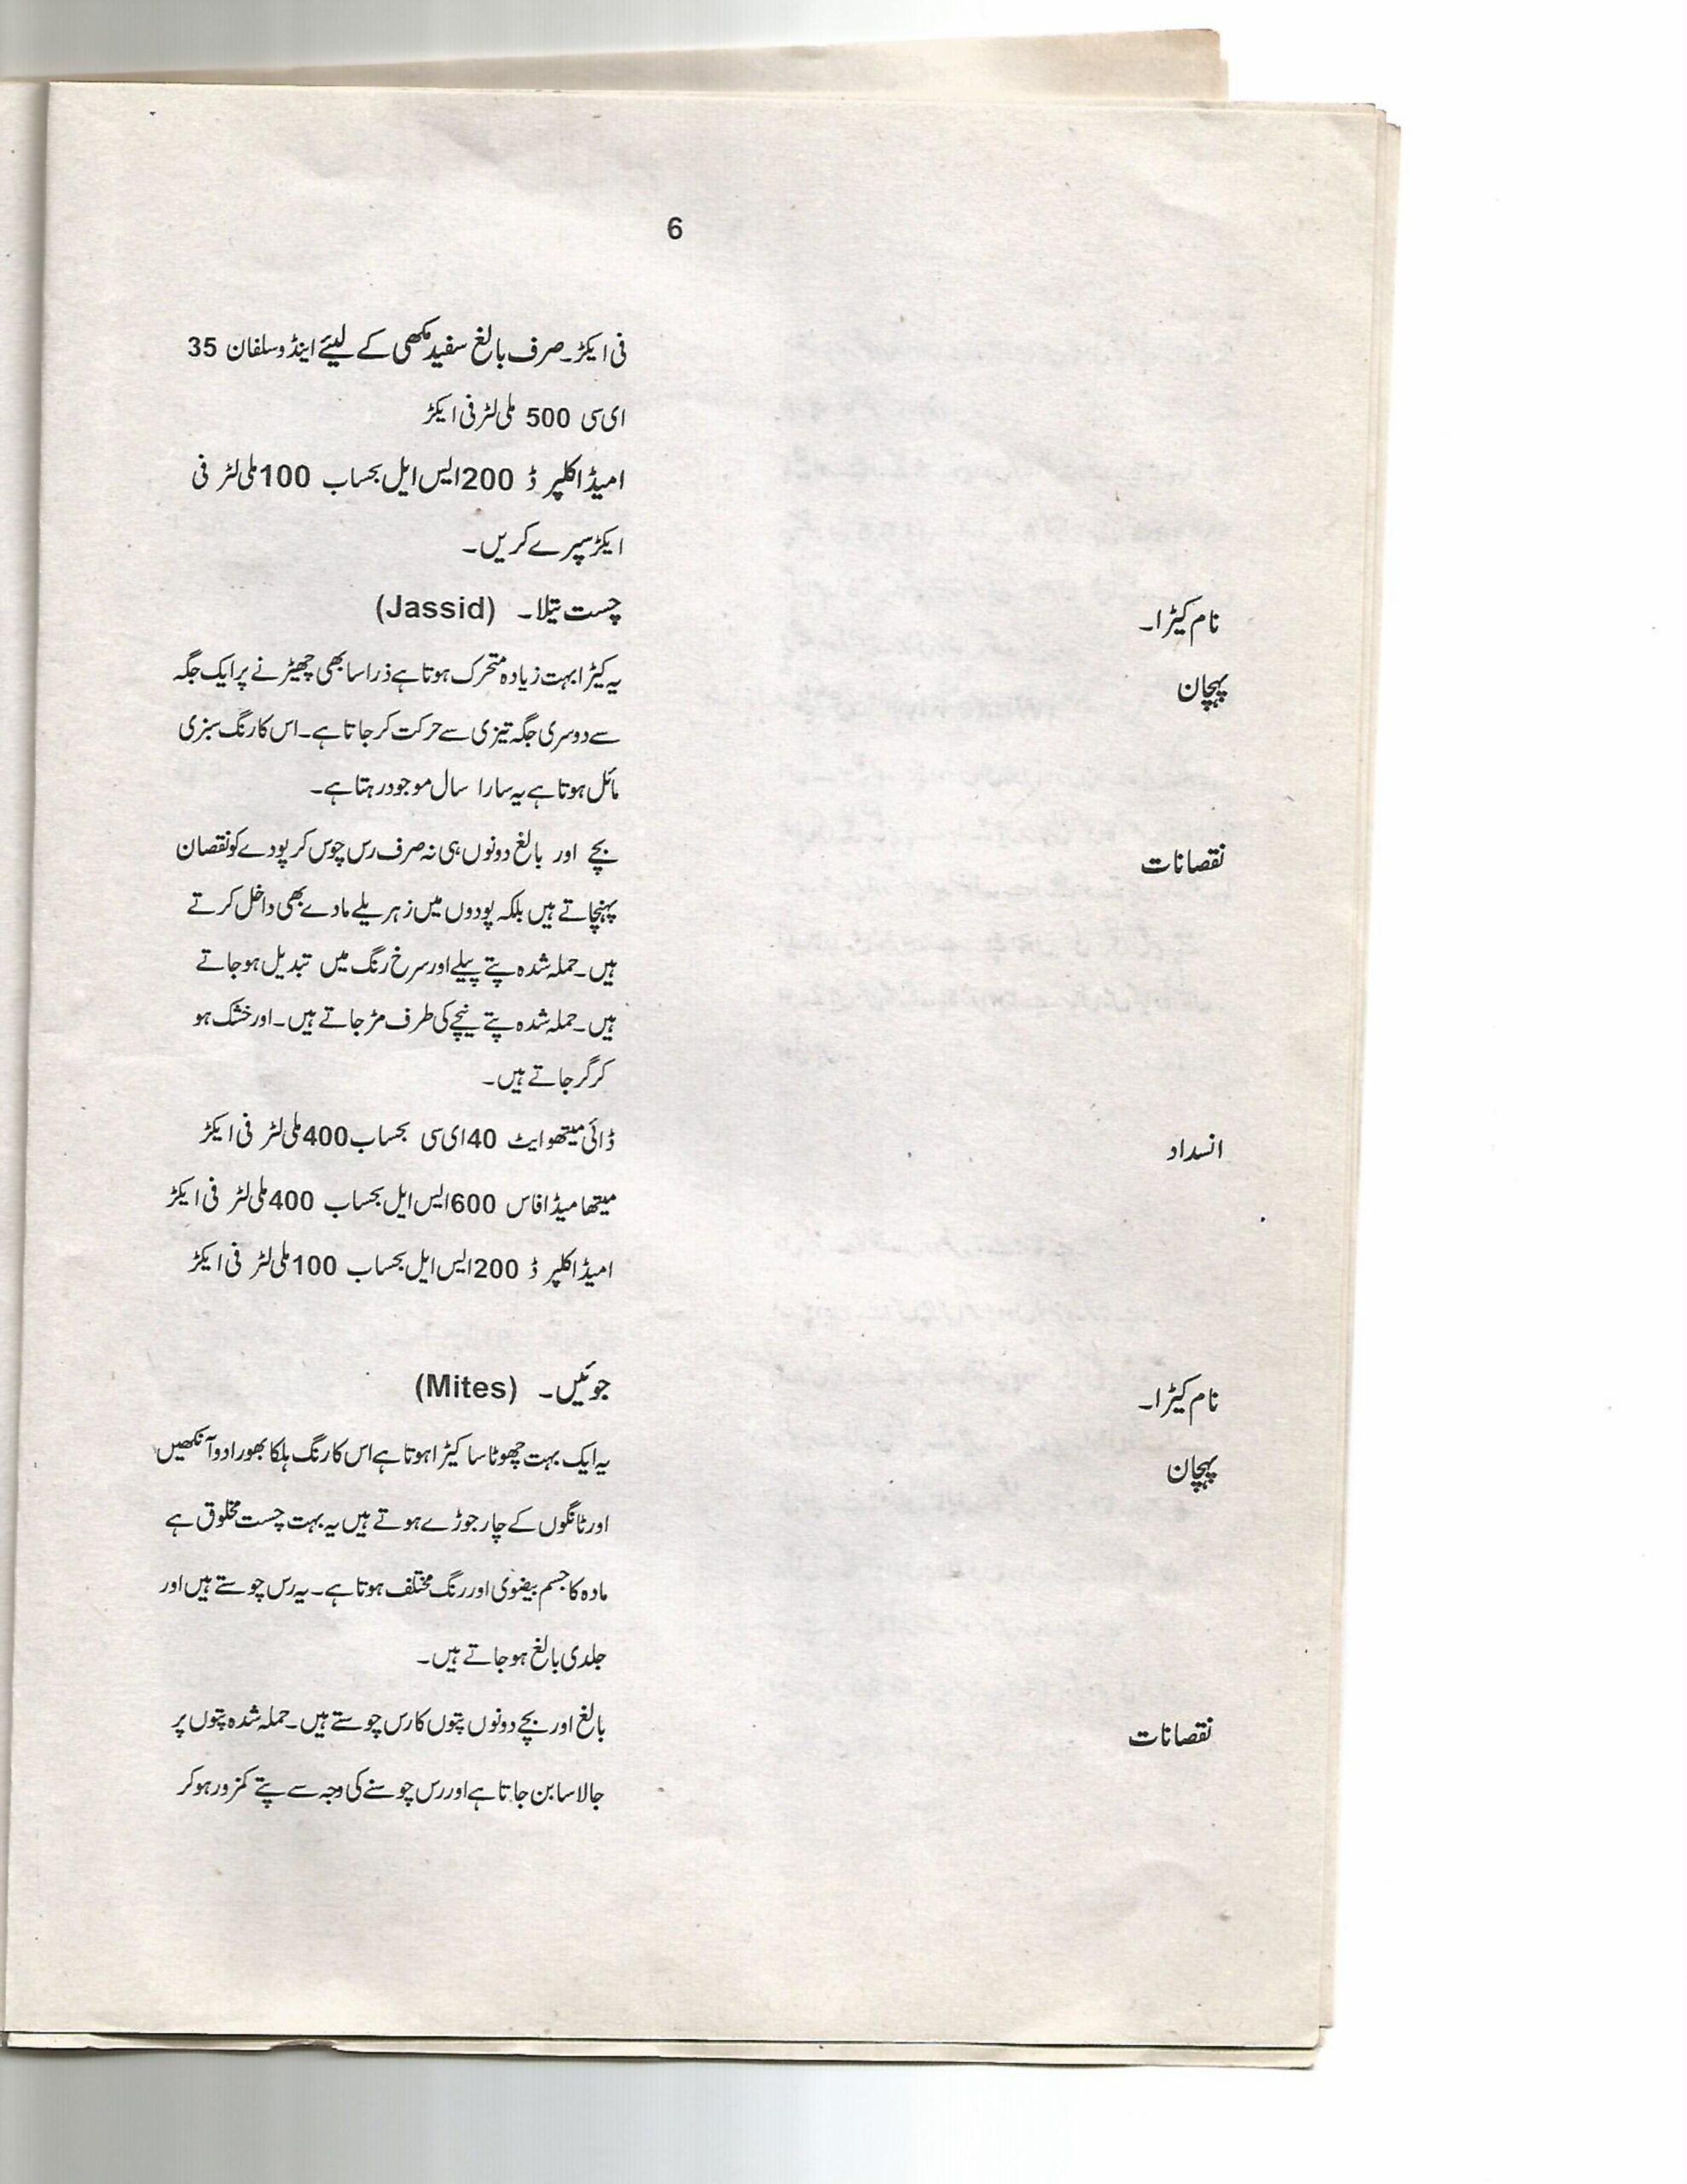 6
فی ایکڑ۔ صرف بالغ سفید مکھی کے لیئے اینڈوسلفان 35
ای سی 500 ملی لٹر فی ایکڑ
امیڈاکلپر ڈ 200 ایس ایل بحساب 100 ملی لٹر فی
ایکڑ سپرے کریں۔
نام کیڑا۔ چست تیلا۔ (Jassid)
پہچان یہ کیڑا بہت زیادہ متحرک ہوتا ہے ذرا سا بھی چھیڑنے پر ایک جگہ
سے دوسری جگہ تیزی سے حرکت کر جاتا ہے۔ اس کا رنگ سبزی
مائل ہوتا ہے یہ سارا سال موجود رہتا ہے۔
نقصانات بچے اور بالغ دونوں ہی نہ صرف رس چوس کر پودے کو نقصان
پہنچاتے ہیں بلکہ پودوں میں زہریلے مادے بھی داخل کرتے
ہیں۔ حملہ شدہ پتے پیلے اور سرخ رنگ میں تبدیل ہو جاتے
ہیں۔ حملہ شدہ پتے نیچے کی طرف مڑ جاتے ہیں۔ اور خشک ہو
کر گر جاتے ہیں۔
انسداد ڈائی میتھوایٹ 40 ای سی بحساب 400 ملی لٹر فی ایکڑ
میتھامیڈافاس 600 ایس ایل بحساب 400 ملی لٹر فی ایکڑ
امیڈاکلپر ڈ 200 ایس ایل بحساب 100 ملی لٹر فی ایکڑ
نام کیڑا۔ جوئیں۔ (Mites)
پہچان یہ ایک بہت چھوٹا سا کیڑا ہوتا ہے اس کا رنگ ہلکا بھورا دو آنکھیں
اور ٹانگوں کے چار جوڑے ہوتے ہیں یہ بہت چست مخلوق ہے
مادہ کا جسم بیضوی اور رنگ مختلف ہوتا ہے۔ یہ رس چوستے ہیں اور
جلدی بالغ ہو جاتے ہیں۔
نقصانات بالغ اور بچے دونوں پتوں کا رس چوستے ہیں۔ حملہ شدہ پتوں پر
جالا سا بن جاتا ہے اور رس چوسنے کی وجہ سے پتے کمزور ہو کر